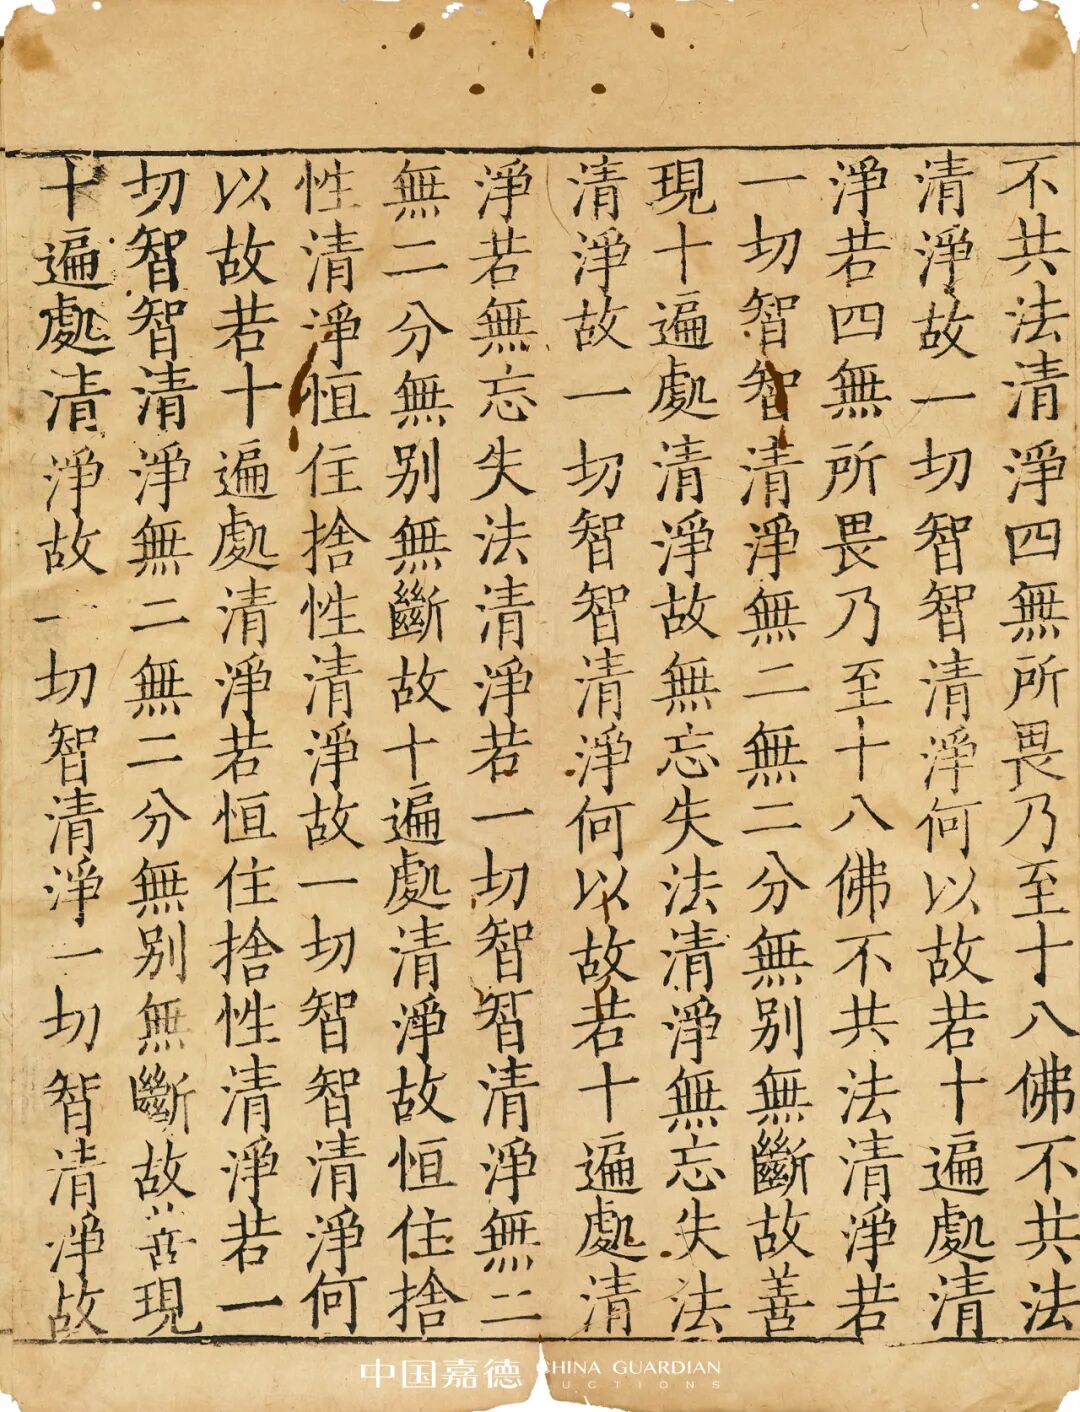 不共法清淨四無所畏乃至十八佛不共法
清淨故一切智智清淨何以故若十遍處清
淨若四無所畏乃至十八佛不共法清淨若
一切智智清淨無二無二分無別無斷故善
現十遍處清淨故無忘失法清淨無忘失法
清淨故一切智智清淨何以故若十遍處清
淨若無忘失法清淨若一切智智清淨無二
無二分無別無斷故十遍處清淨故恒住捨
性清淨恒住捨性清淨故一切智智清淨何
以故若十遍處清淨若恒住捨性清淨若一
切智智清淨無二無二分無別無斷故善現
十遍處清淨故一切智清淨一切智清淨故
中国嘉德 CHINA GUARDIAN
AUCTIONS